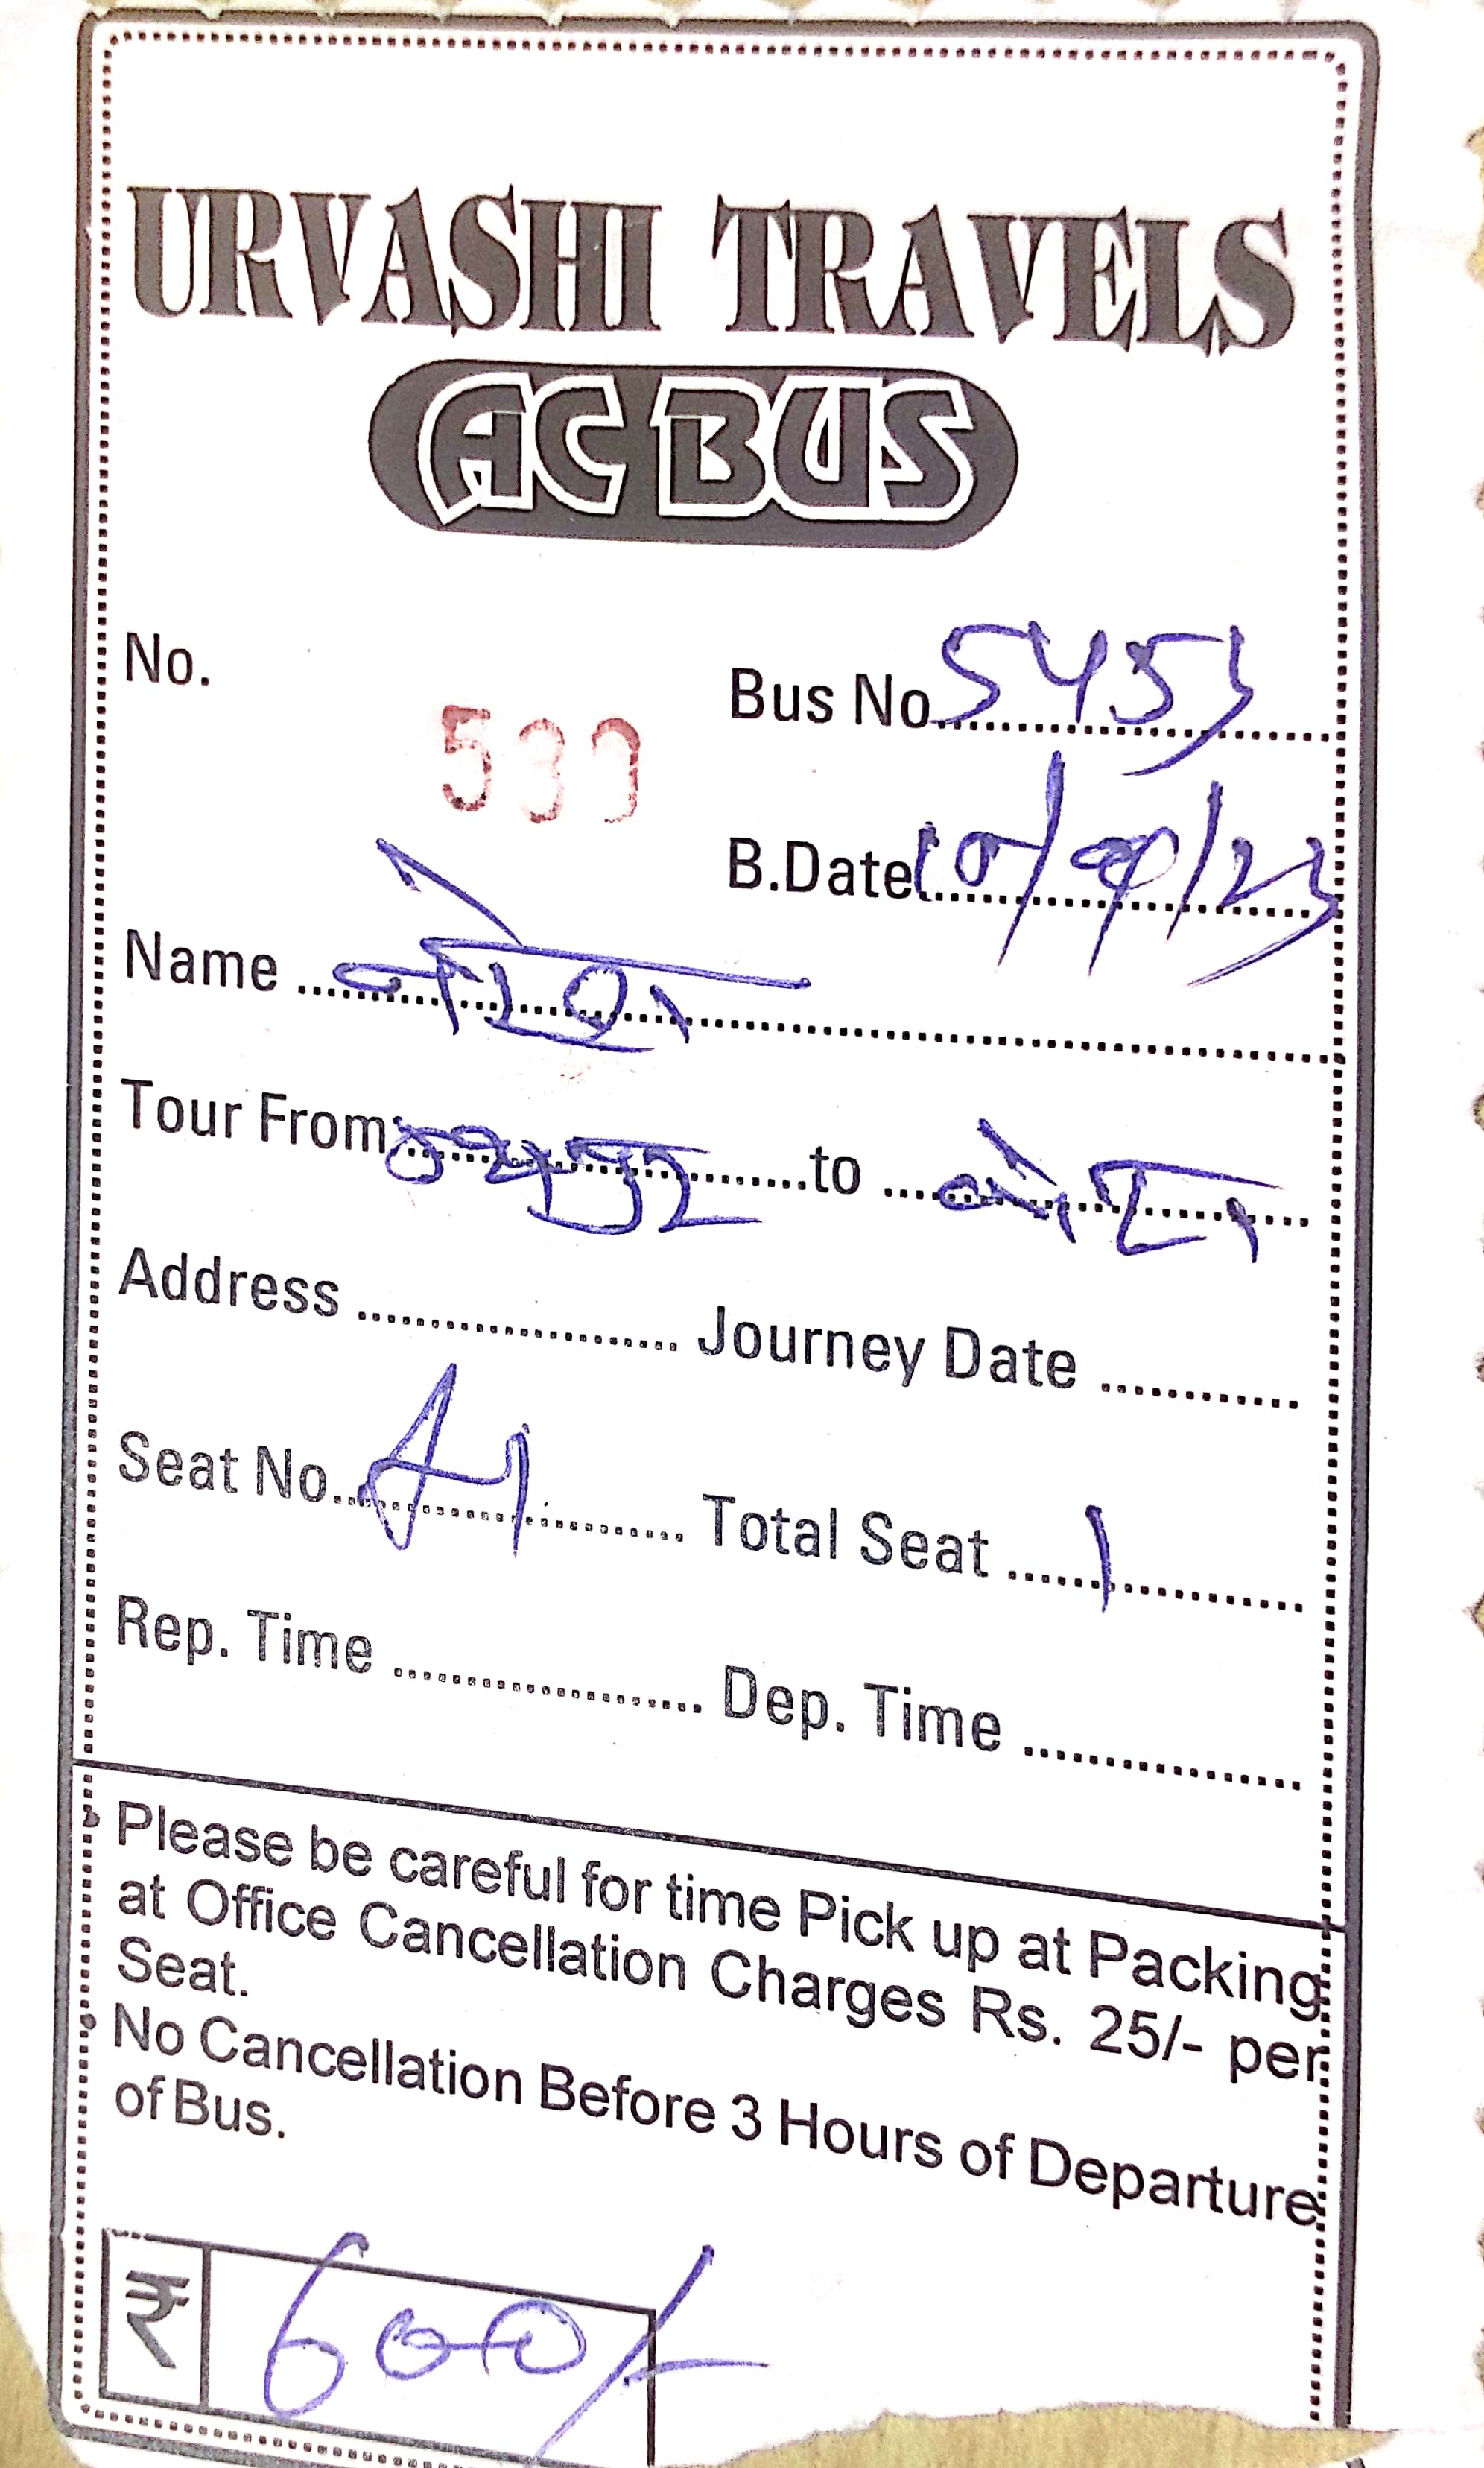 URVASHI TRAVELS
AC BUS
No. 533 Bus No. 5453
B.Date 10/09/23
Name नरेश
Tour From जयपुर to कोटा
Address Journey Date
Seat No. A1 Total Seat 1
Rep. Time Dep. Time
Please be careful for time Pick up at Packing
at Office Cancellation Charges Rs. 25/- per
Seat.
No Cancellation Before 3 Hours of Departure
of Bus.
₹ 600/-